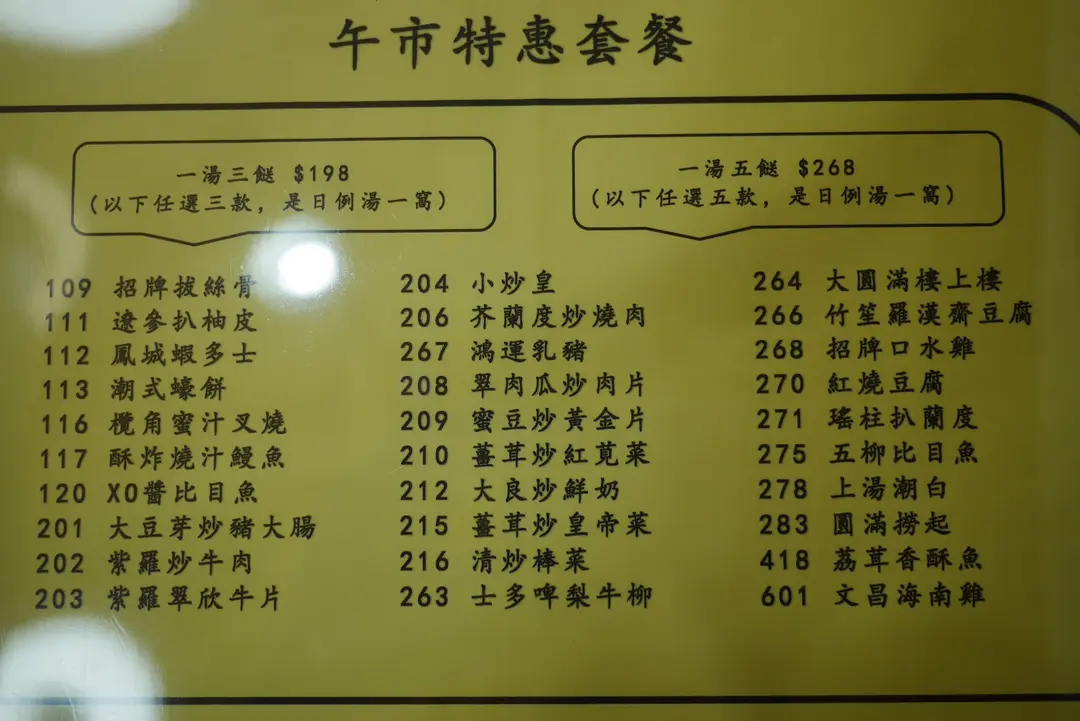 午市特惠套餐
一湯三餸 $198
(以下任選三款，是日例湯一窩)
一湯五餸 $268
(以下任選五款，是日例湯一窩)
109 招牌拔絲骨
111 遼參扒柚皮
112 鳳城蝦多士
113 潮式蠔餅
116 欖角蜜汁叉燒
117 酥炸燒汁鰻魚
120 XO醬比目魚
201 大豆芽炒豬大腸
202 紫羅炒牛肉
203 紫羅翠欣牛片
204 小炒皇
206 芥蘭度炒燒肉
267 鴻運乳豬
208 翠肉瓜炒肉片
209 蜜豆炒黃金片
210 薑茸炒紅莧菜
212 大良炒鮮奶
215 薑茸炒皇帝菜
216 清炒棒菜
263 士多啤梨牛柳
264 大圓滿樓上樓
266 竹笙羅漢齋豆腐
268 招牌口水雞
270 紅燒豆腐
271 瑤柱扒蘭度
275 五柳比目魚
278 上湯潮白
283 圓滿撈起
418 荔茸香酥魚
601 文昌海南雞